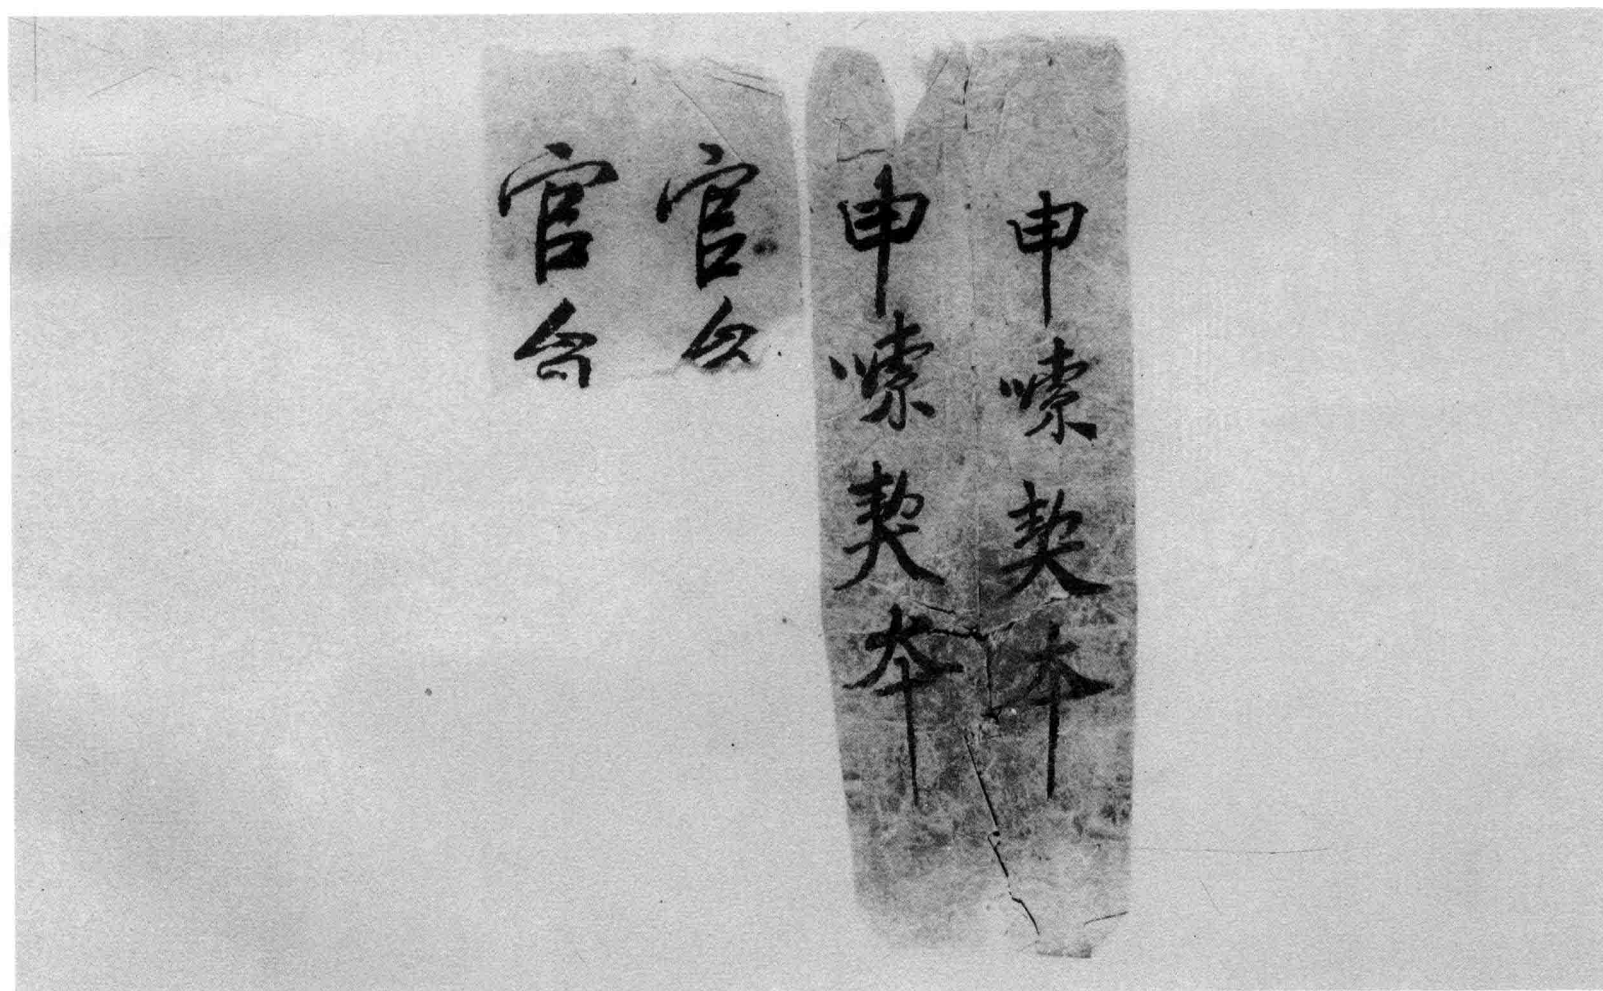 申嗦契本
申嗦契本
官
官